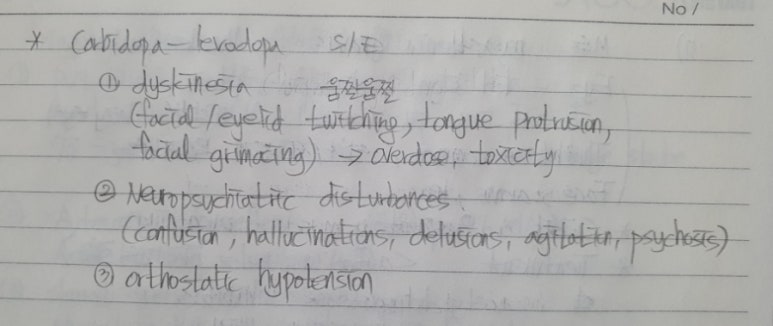 No /
* Carbidopa-levodopa S/E
① dyskinesia 움찔움찔
(facial/eyelid twitching, tongue protrusion,
facial grimacing) → overdose, toxicity
② Neuropsychiatric disturbances.
(confusion, hallucinations, delusions, agitation, psychosis)
③ orthostatic hypotension